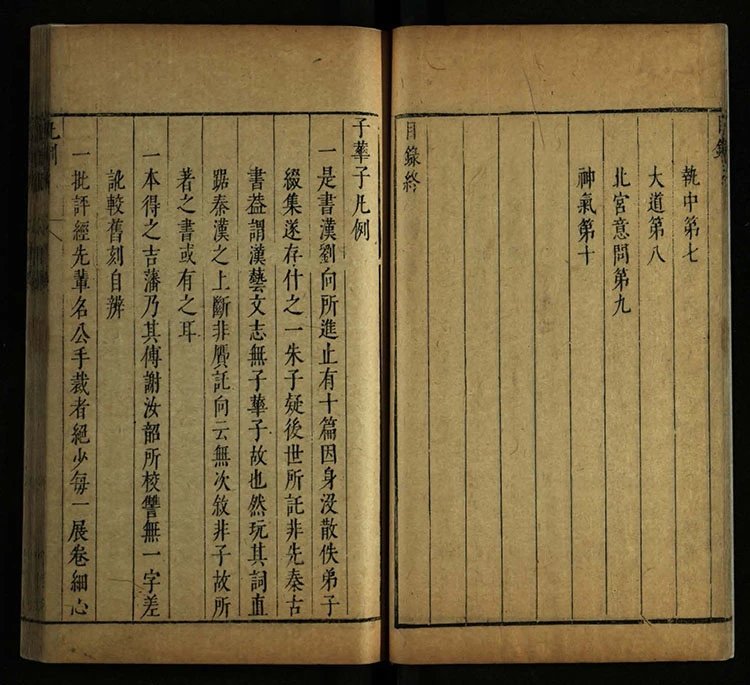 執中第七
大道第八
北宮意問第九
神氣第十
目錄終
子華子凡例
一是書漢劉向所進止有十篇因身沒散佚弟子
綴集遂存什之一朱子疑後世所託非先秦古
書葢謂漢藝文志無子華子故也然玩其詞直
踞秦漢之上斷非贋託向云無次敘非子故所
著之書或有之耳
一本得之吉藩乃其傅謝汝韶所校讐無一字差
訛較舊刻自辨
一批評經先輩名公手裁者絕少每一展卷細心
凡例